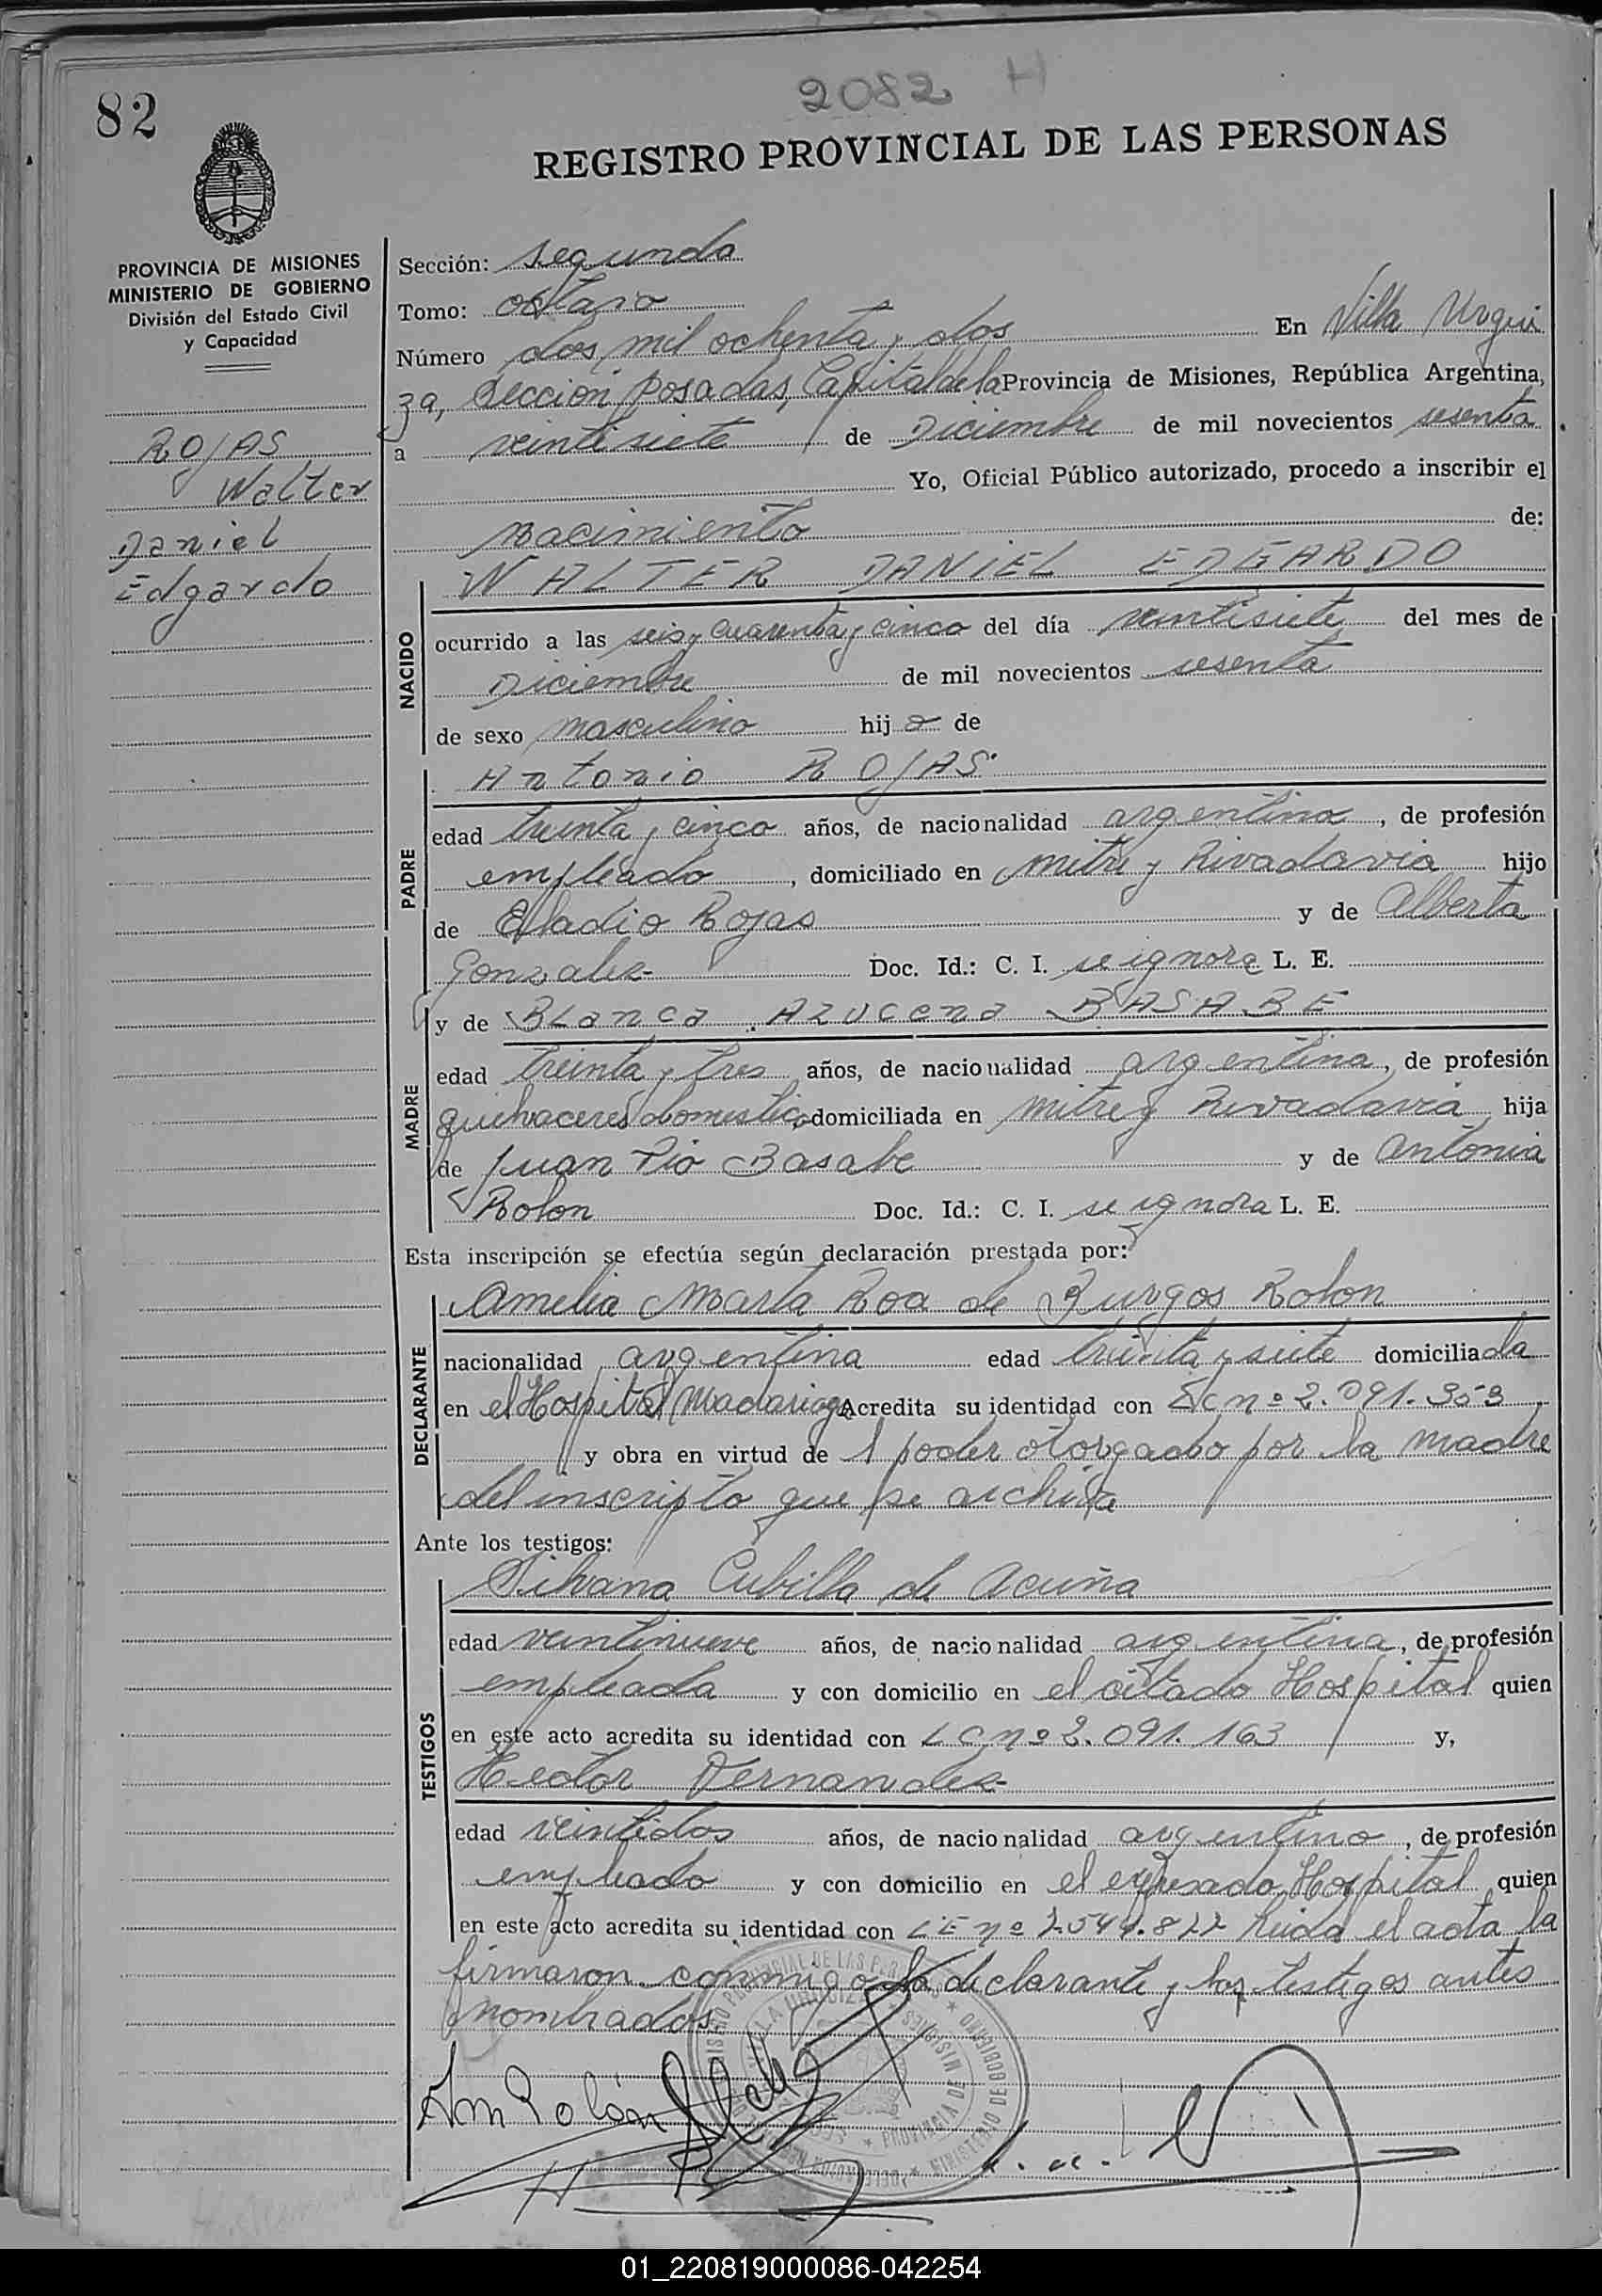 2082 H
82
REGISTRO PROVINCIAL DE LAS PERSONAS
PROVINCIA DE MISIONES
MINISTERIO DE GOBIERNO
División del Estado Civil
y Capacidad
ROJAS
Walter
Daniel
Edgardo
Sección: segunda
Tomo: octavo
Número dos mil ochenta y dos En Villa Urqui
za, Sección Posadas, Capital de la Provincia de Misiones, República Argentina,
a veintisiete de Diciembre de mil novecientos sesenta
Yo, Oficial Público autorizado, procedo a inscribir el
nacimiento de:
WALTER DANIEL EDGARDO
NACIDO
ocurrido a las seis y cuarenta y cinco del día veintisiete del mes de
Diciembre de mil novecientos sesenta
de sexo masculino hijo de
Antonio ROJAS
PADRE
edad treinta y cinco años, de nacionalidad argentina, de profesión
empleado, domiciliado en Mitre y Rivadavia hijo
de Eladio Rojas y de Alberta
Gonzalez Doc. Id.: C. I. se ignora L. E.
y de Blanca Azucena BASABE
MADRE
edad treinta y tres años, de nacionalidad argentina, de profesión
quehaceres domestico domiciliada en Mitre y Rivadavia hija
de Juan Pio Basabe y de Antonia
Rolon Doc. Id.: C. I. se ignora L. E.
Esta inscripción se efectúa según declaración prestada por:
Amelia Marta Roa de Burgos Rolon
DECLARANTE
nacionalidad argentina edad treinta y siete domiciliada
en el Hospital Madariaga Acredita su identidad con Lc nº 2.091.353
y obra en virtud de l poder otorgado por la madre
del inscripto que se archiva
Ante los testigos:
Silvana Cubilla de Acuña
TESTIGOS
edad veintinueve años, de nacionalidad argentina, de profesión
empleada y con domicilio en el citado Hospital quien
en este acto acredita su identidad con LC nº 2.091.163 y,
Hector Fernandez
edad veintidos años, de nacionalidad argentino, de profesión
empleado y con domicilio en el expresado Hospital quien
en este acto acredita su identidad con LE nº leida el acta la
firmaron conmigo la declarante y los testigos antes
nombrados
Am Rolón
01_220819000086-042254